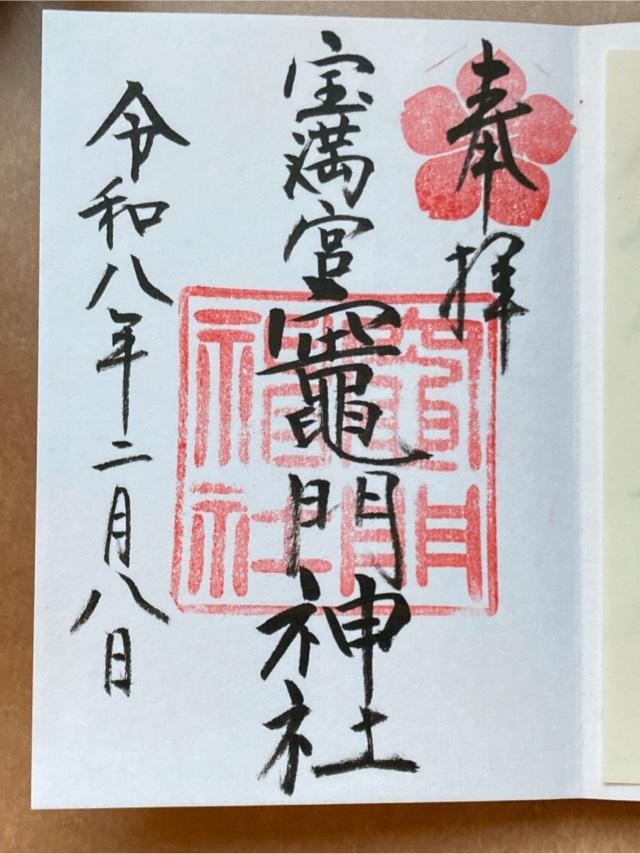 奉拝
宝満宮竈門神社
竈門神社
令和八年二月八日